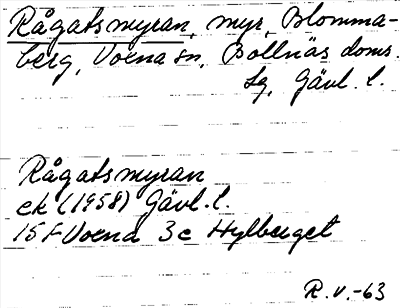 Rågatsmyran, myr, Blomma-
berg, Voxna sn, Bollnäs doms.
sg, Gävl. l.
Rågatsmyran
ek (1958) Gävl. l.
15 F Voxna 3 c Hylberget
R.V.-63